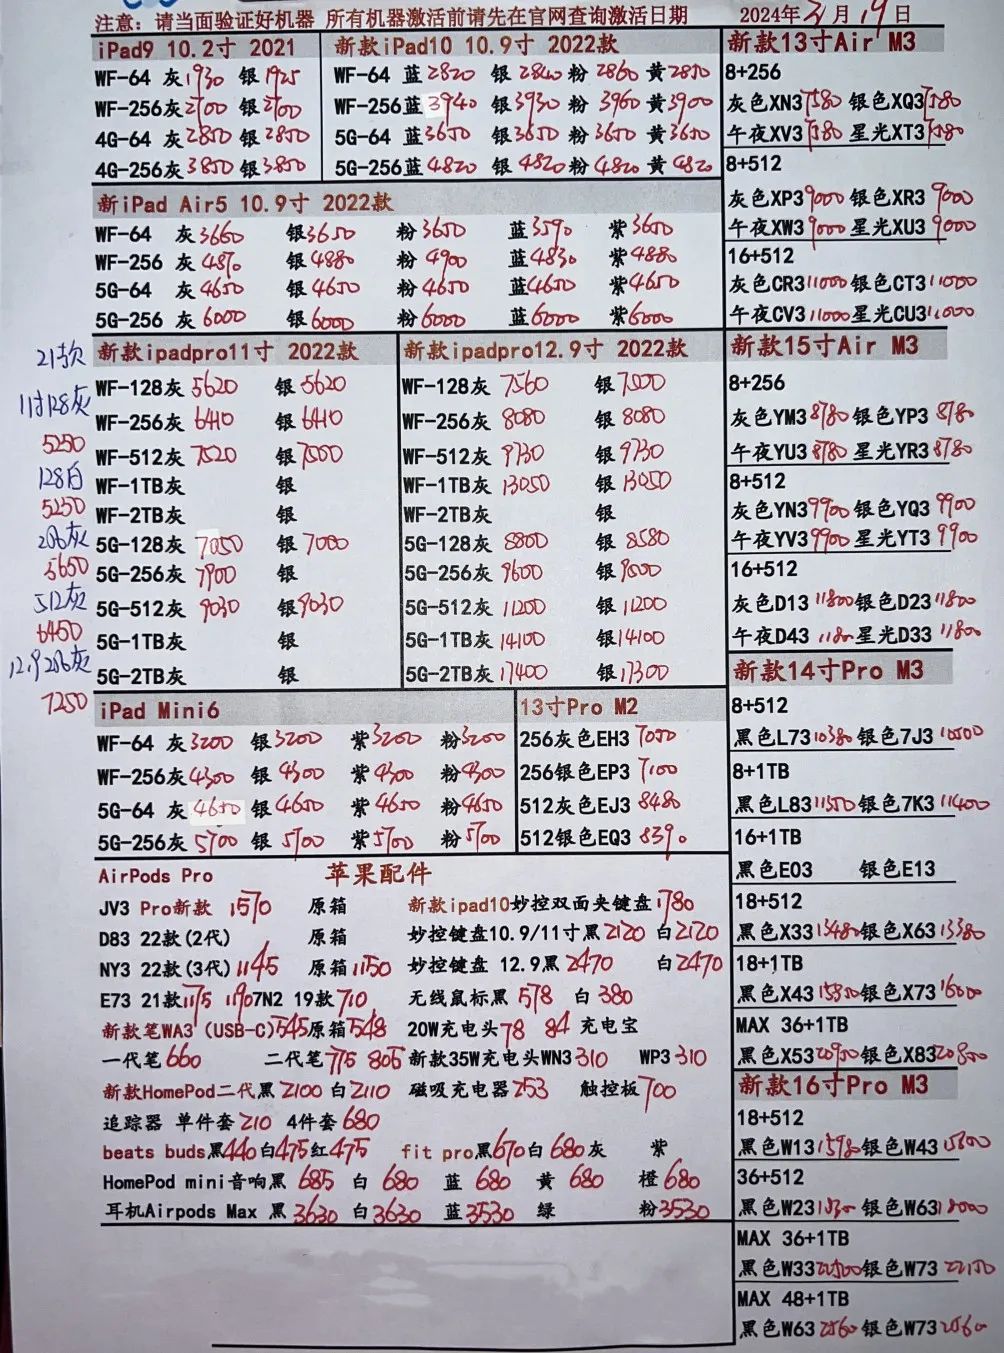 注意: 请当面验证好机器 所有机器激活前请先在官网查询激活日期 2024年3月19日
iPad9 10.2寸 2021
WF-64 灰1930 银1925
WF-256灰2700 银2700
4G-64 灰2850 银2850
4G-256灰3850 银3850
新款iPad10 10.9寸 2022款
WF-64 蓝2820 银2840 粉2860 黄2850
WF-256蓝3940 银3930 粉3960 黄3900
5G-64 蓝3650 银3650 粉3650 黄3650
5G-256蓝4820 银4820 粉4820 黄4820
新iPad Air5 10.9寸 2022款
WF-64 灰3660 银3650 粉3650 蓝3590 紫3650
WF-256 灰4870 银4880 粉4900 蓝4830 紫4880
5G-64 灰4650 银4650 粉4650 蓝4650 紫4650
5G-256 灰6000 银6000 粉6000 蓝6000 紫6000
21款
11寸128灰
5250
128白
5250
256灰
5650
512灰
6450
12.9 256灰
7250
新款ipadpro11寸 2022款
WF-128灰 5620 银5620
WF-256灰 6410 银6410
WF-512灰 7520 银7500
WF-1TB灰 银
WF-2TB灰 银
5G-128灰 7050 银7000
5G-256灰 7900 银
5G-512灰 9030 银9030
5G-1TB灰 银
5G-2TB灰 银
新款ipadpro12.9寸 2022款
WF-128灰 7560 银7500
WF-256灰 8080 银8080
WF-512灰 9730 银9730
WF-1TB灰 13050 银13050
WF-2TB灰 银
5G-128灰 8800 银8580
5G-256灰 9600 银9500
5G-512灰 11200 银11200
5G-1TB灰 14100 银14100
5G-2TB灰 17400 银17300
iPad Mini6
WF-64 灰3200 银3200 紫3200 粉3200
WF-256灰4300 银4300 紫4300 粉4300
5G-64 灰4650 银4650 紫4650 粉4650
5G-256灰5700 银5700 紫5700 粉5700
13寸Pro M2
256灰色EH3 7050
256银色EP3 7100
512灰色EJ3 8480
512银色EQ3 8390
AirPods Pro 苹果配件
JV3 Pro新款 1570 原箱 新款ipad10妙控双面夹键盘1780
D83 22款(2代) 原箱 妙控键盘10.9/11寸黑2120 白2120
NY3 22款(3代)1145 原箱1150 妙控键盘 12.9黑2470 白2470
E73 21款1175 1190 7N2 19款710 无线鼠标黑578 白380
新款笔WA3 (USB-C)545原箱548 20W充电头78 84 充电宝
一代笔660 二代笔775 805 新款35W充电头WN3 310 WP3 310
新款HomePod二代黑2100 白2110 磁吸充电器253 触控板700
追踪器 单件套210 4件套680
beats buds黑440白475红475 fit pro黑670白680灰 紫
HomePod mini音响黑685 白680 蓝680 黄680 橙680
耳机Airpods Max 黑3630 白3630 蓝3530 绿 粉3530
新款13寸Air M3
8+256
灰色XN3 7580 银色XQ3 7580
午夜XV3 7580 星光XT3 7580
8+512
灰色XP3 9000 银色XR3 9000
午夜XW3 9000 星光XU3 9000
16+512
灰色CR3 11000 银色CT3 11000
午夜CV3 11000 星光CU3 11000
新款15寸Air M3
8+256
灰色YM3 8780 银色YP3 8780
午夜YU3 8780 星光YR3 8780
8+512
灰色YN3 9900 银色YQ3 9900
午夜YV3 9900 星光YT3 9900
16+512
灰色D13 11800 银色D23 11800
午夜D43 1180 星光D33 11800
新款14寸Pro M3
8+512
黑色L73 10380 银色7J3 10500
8+1TB
黑色L83 11550 银色7K3 11400
16+1TB
黑色E03 银色E13
18+512
黑色X33 13480 银色X63 13380
18+1TB
黑色X43 15850 银色X73 16000
MAX 36+1TB
黑色X53 20900 银色X83 20800
新款16寸Pro M3
18+512
黑色W13 15980 银色W43 15800
36+512
黑色W23 银色W63 18000
MAX 36+1TB
黑色W33 22500 银色W73 22150
MAX 48+1TB
黑色W63 2560 银色W73 2560